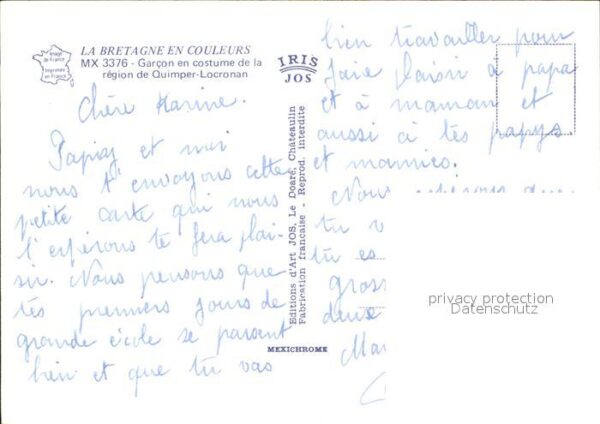 Image de France
Imprimée en France
LA BRETAGNE EN COULEURS
MX 3376 - Garçon en costume de la
région de Quimper-Locronan
IRIS
JOS
Chère Karine.
Papy et moi
nous t'envoyons cette
petite carte qui nous
l'espérons te fera plai-
sir. Nous pensons que
tes premiers jours de
grande école se passent
bien et que tu vas
Editions d'Art JOS, Le Doaré, Châteaulin
Fabrication française - Reprod. interdite
MEXICHROME
bien travailler pour
faire plaisir à papa
et à maman et
aussi à tes papys
et mamies.
Nous espérons que
tu v
tu es
gross
deux
Mam
privacy protection
Datenschutz